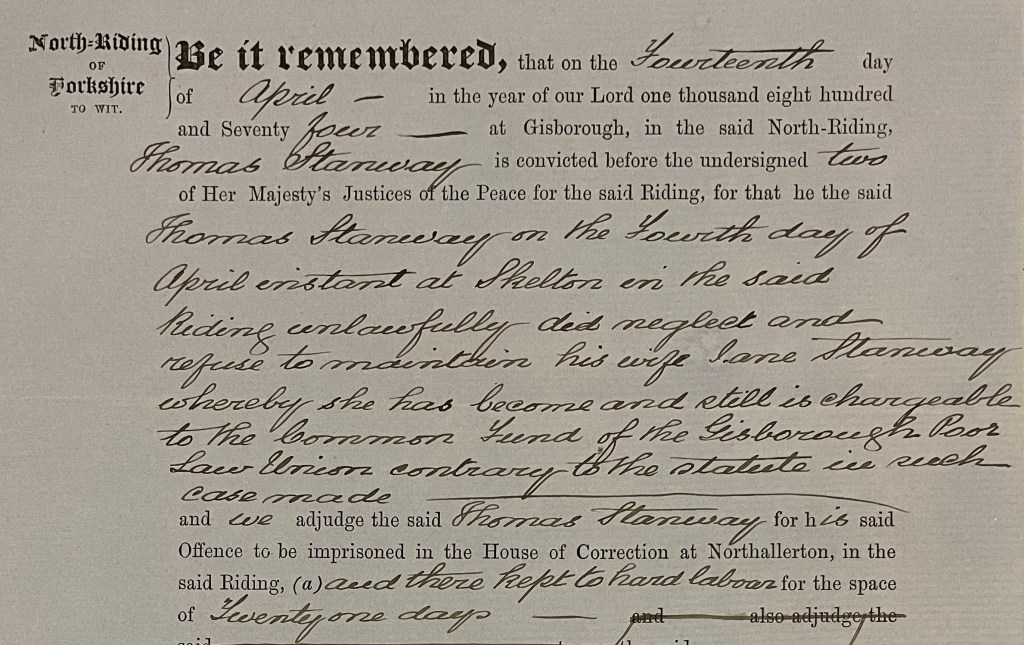 North-Riding
OF
Yorkshire
TO WIT.
Be it remembered, that on the Fourteenth day
of April — in the year of our Lord one thousand eight hundred
and Seventy four — at Gisborough, in the said North-Riding,
Thomas Stanway is convicted before the undersigned two
of Her Majesty's Justices of the Peace for the said Riding, for that he the said
Thomas Stanway on the Fourth day of
April instant at Skelton in the said
Riding unlawfully did neglect and
refuse to maintain his wife Jane Stanway
whereby she has become and still is chargeable
to the Common Fund of the Gisborough Poor
Law Union contrary to the statute in such
case made
and we adjudge the said Thomas Stanway for his said
Offence to be imprisoned in the House of Correction at Northallerton, in the
said Riding, (a) and there kept to hard labour for the space
of Twenty one days — and also adjudge the
said